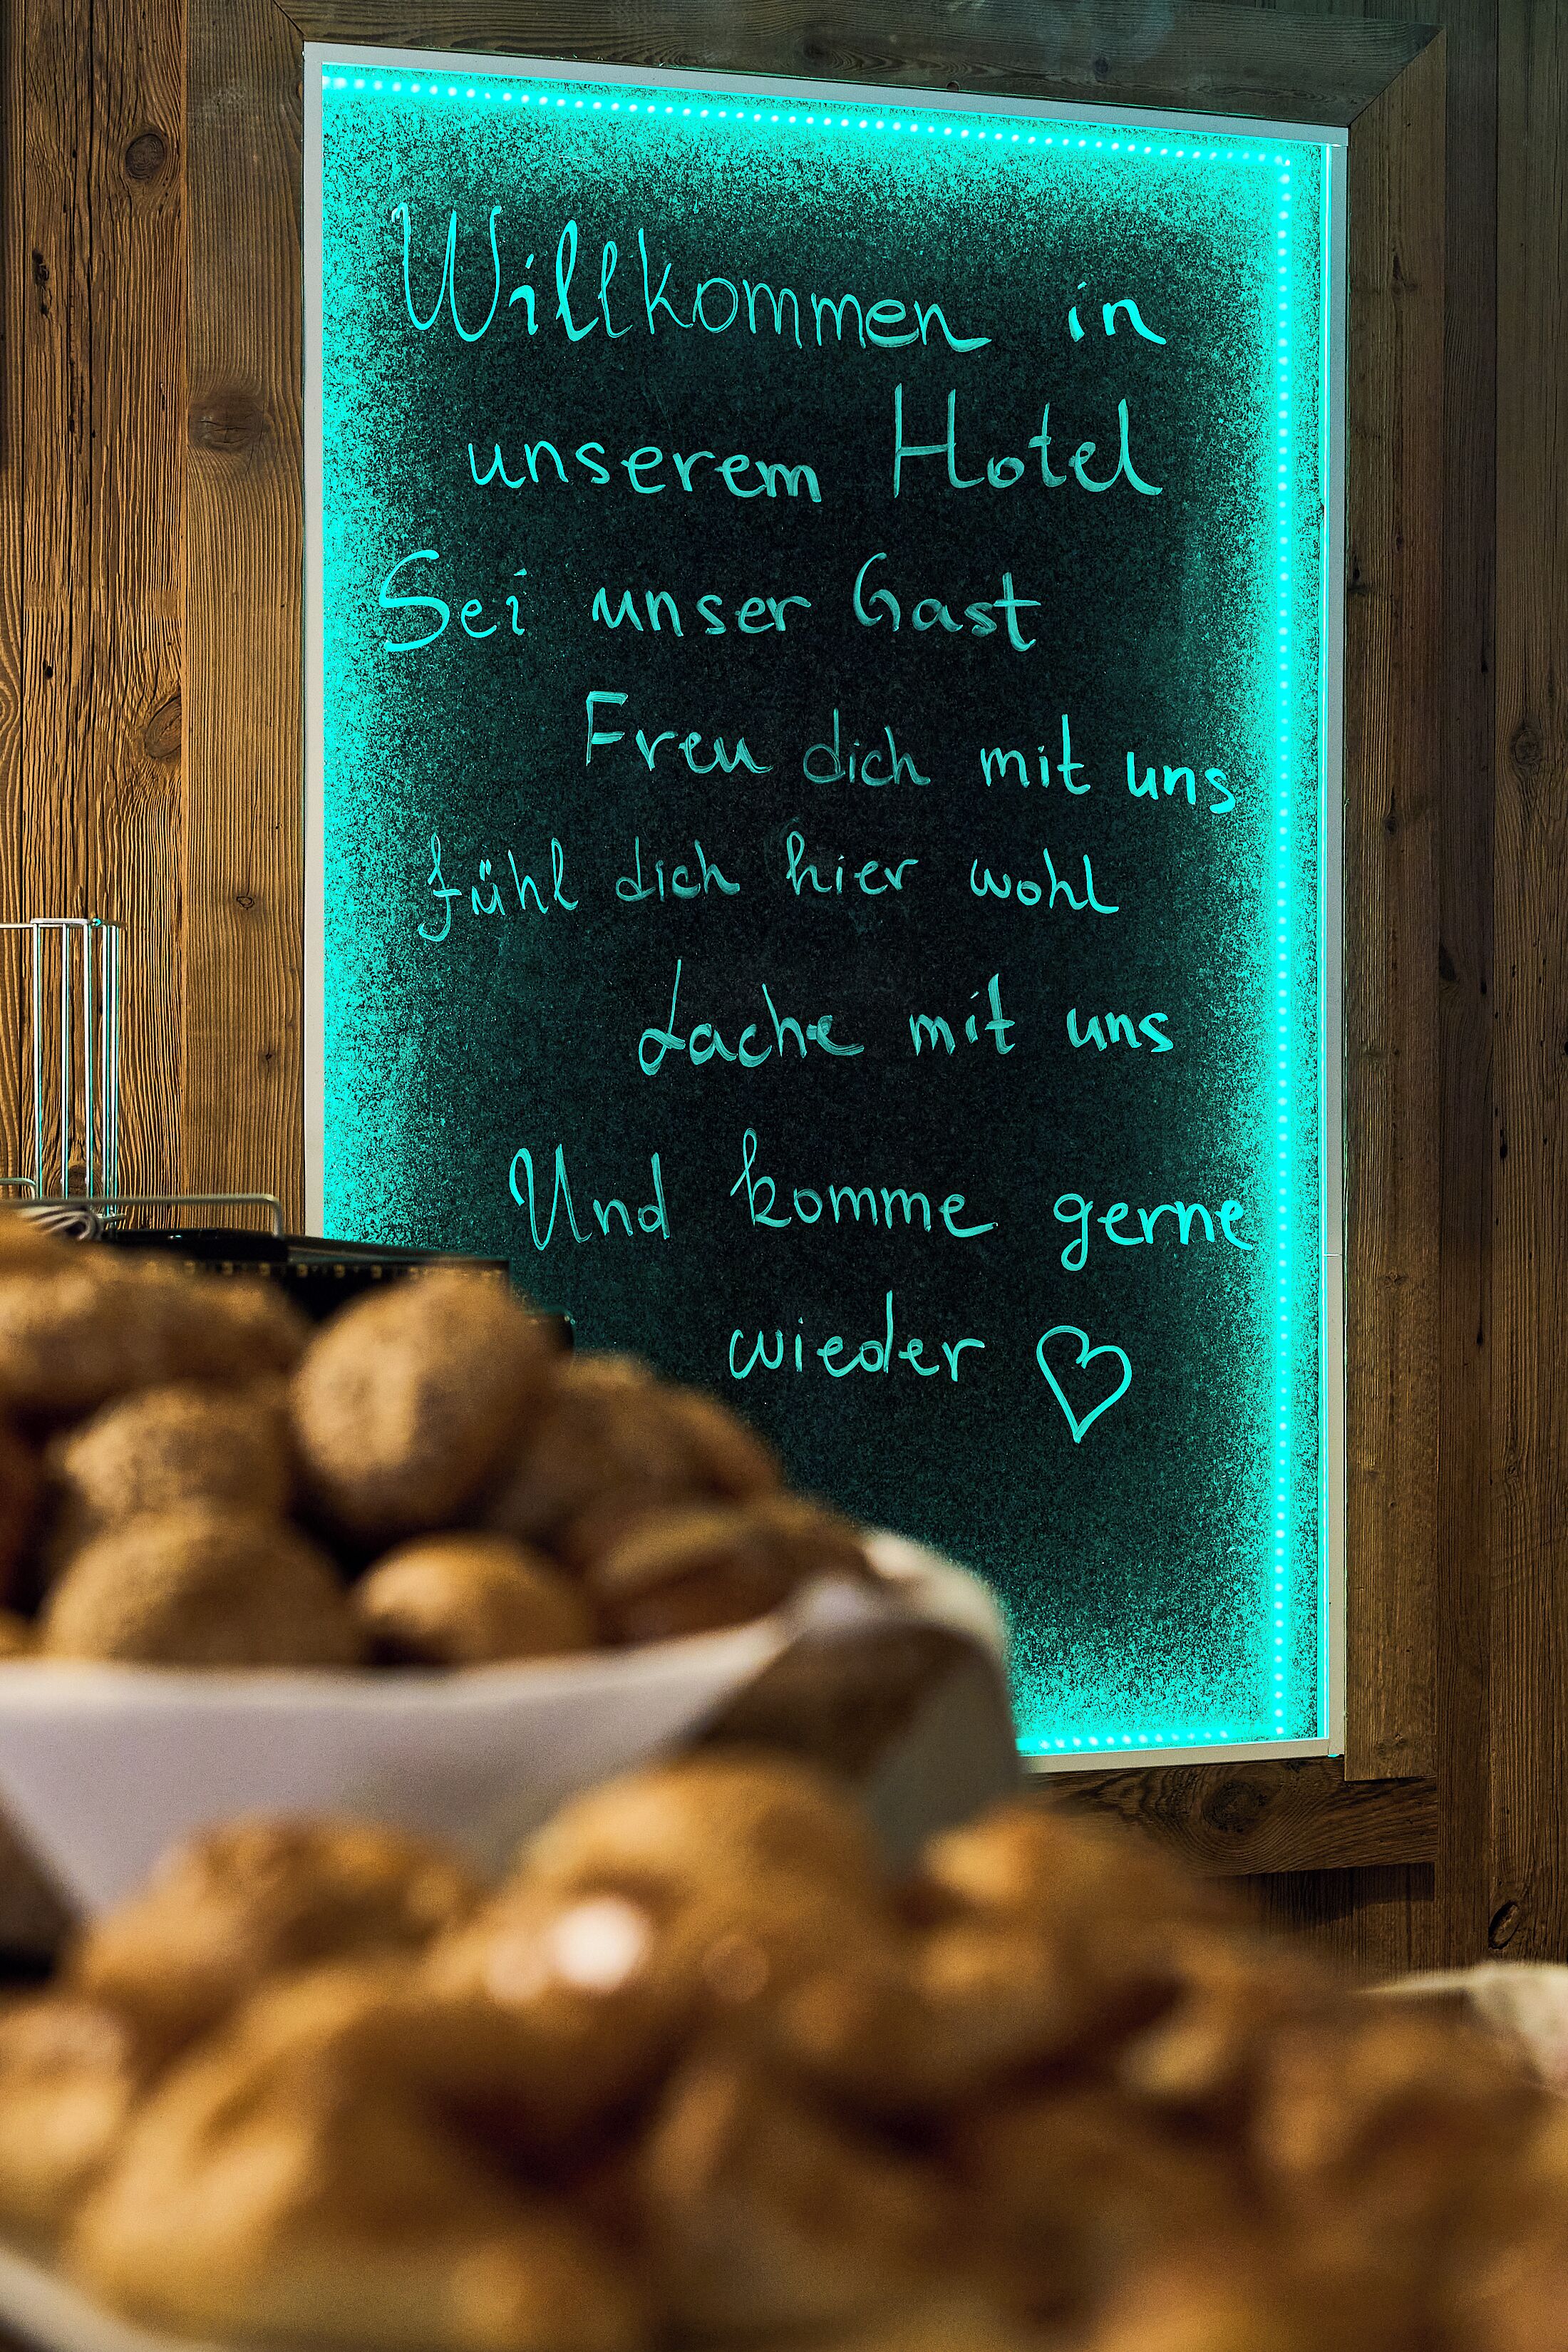 Willkommen in
unserem Hotel
Sei unser Gast
Freu dich mit uns
fühl dich hier wohl
Lache mit uns
Und komme gerne
wieder ♡